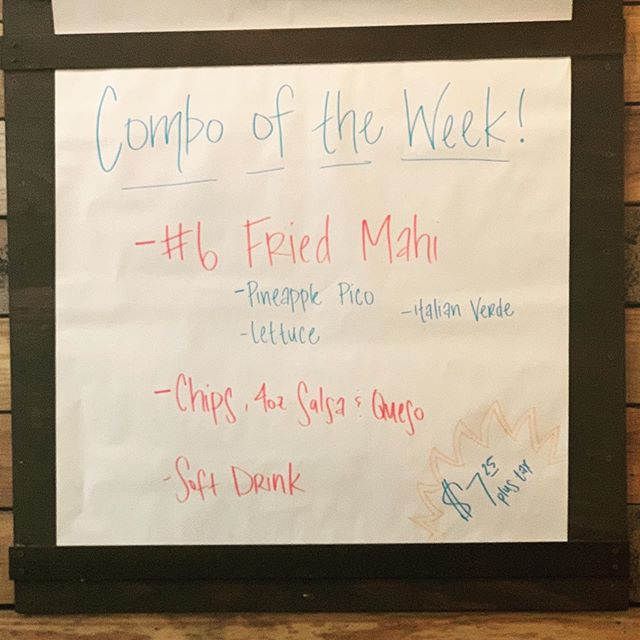 Combo of the Week!
-#6 Fried Mahi
-Pineapple Pico
-Italian Verde
-lettuce
-Chips, 4oz Salsa & Queso
-Soft Drink
$7.25 plus tax